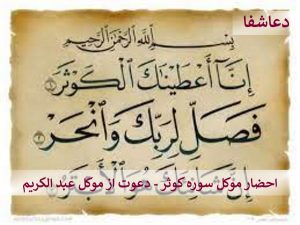 دعاشفا
بِسْمِ اللَّهِ الرَّحْمَٰنِ الرَّحِيمِ
إِنَّا أَعْطَيْنَكَ الْكَوْثَرَ ١
فَصَلِّ لِرَبِّكَ وَانْحَرْ ٢
إِنَّ شَانِئَكَ هُوَ الْأَبْتَرُ
احضار موکل سوره کوثر - دعوت از موکل عبد الکریم